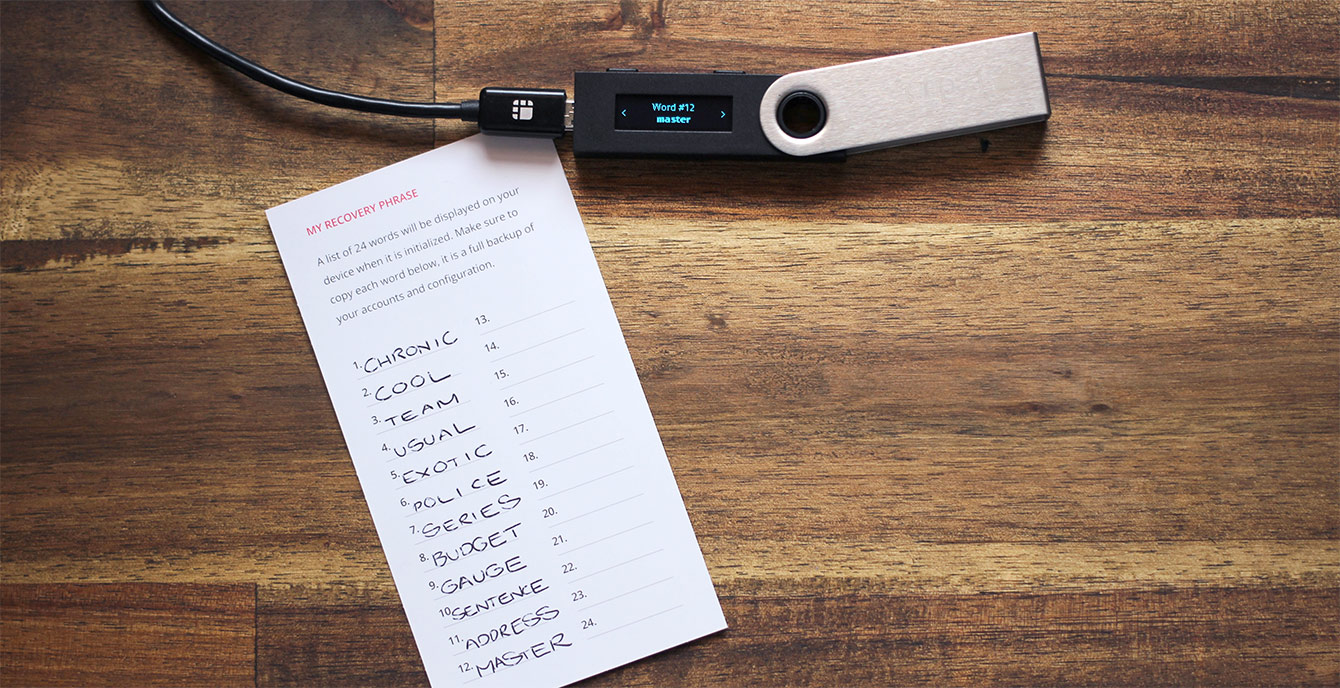 Word #12
master
MY RECOVERY PHRASE
A list of 24 words will be displayed on your
device when it is initialized. Make sure to
copy each word below, it is a full backup of
your accounts and configuration.
1. CHRONIC
2. COOL
3. TEAM
4. USUAL
5. EXOTIC
6. POLICE
7. SERIES
8. BUDGET
9. GAUGE
10. SENTENCE
11. ADDRESS
12. MASTER
13.
14.
15.
16.
17.
18.
19.
20.
21.
22.
23.
24.